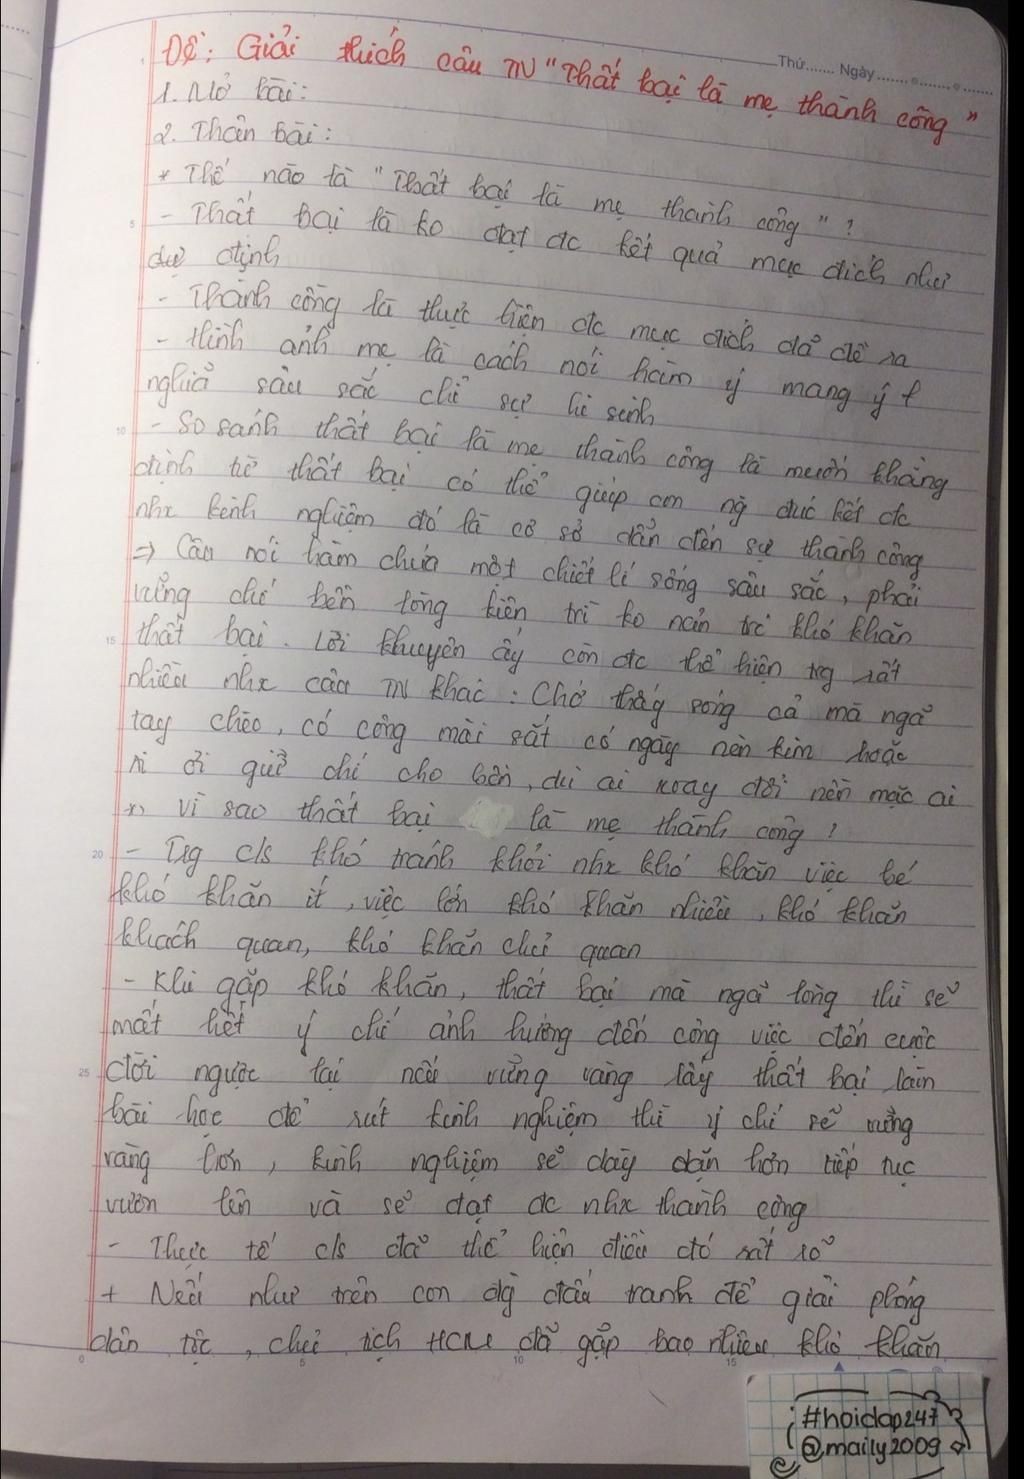 Thứ....... Ngày..................
Đề: Giải thích câu TN "Thất bại là mẹ thành công"
1. Mở bài:
2. Thân bài:
* Thế nào là "Thất bại là mẹ thành công"?
5 - Thất bại là ko đạt đc kết quả mục đích như
dự định
- Thành công là thực hiện đc mục đích đã đề ra
- Hình ảnh mẹ là cách nói hàm ý mang ý
nghĩa sâu sắc chỉ sự hi sinh
10 - So sánh thất bại là mẹ thành công là muốn khẳng
định từ thất bại có thể giúp con ng đúc kết đc
nhx kinh nghiệm đó là cơ sở dẫn đến sự thành công
=> Câu nói hàm chứa một chiết lí sống sâu sắc, phải
vững chí bền lòng kiên trì ko nản trc khó khăn
15 thất bại. Lời khuyên ấy còn đc thể hiện trg rất
nhiều nhx câu TN khác: Chớ thấy sóng cả mà ngả
tay chèo, có công mài sắt có ngày nên kim hoặc
ai ơi giữ chí cho bền, dù ai xoay đổi nền mặc ai
* Vì sao thất bại là mẹ thành công?
20 - Trg c/s khó tránh khỏi nhx khó khăn việc bé
khó khăn ít, việc lớn khó khăn nhiều, khó khăn
khách quan, khó khăn chủ quan
- Khi gặp khó khăn, thất bại mà ngả lòng thì sẽ
mất hết ý chí ảnh hưởng đến công việc đến cuộc
25 đời ngược lại nếu vững vàng lấy thất bại làm
bài học để rút kinh nghiệm thì ý chí sẽ vững
vàng hơn, kinh nghiệm sẽ dày dặn hơn tiếp tục
vươn lên và sẽ đạt đc nhx thành công
- Thực tế c/s đã thể hiện điều đó rất rõ
+ Nếu như trên con đg đấu tranh để giải phóng
dân tộc, chủ tịch HCM đã gặp bao nhiêu khó khăn
0 5 10 15
#hoidap247
@maily2009